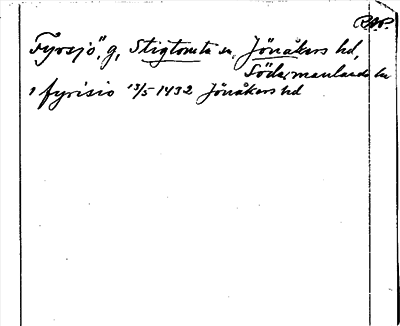 R.A.P.
Fyrsjö, g, Stigtomta sn, Jönåkers hd,
Södermanlands ln
1 fyrisio 13/5 1432 Jönåkers hd